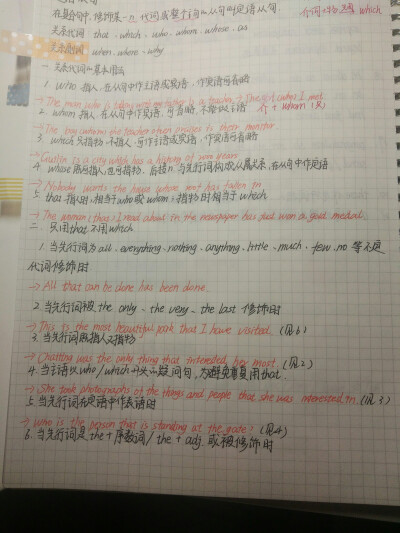 在复合句中，修饰某一n. 代词或整个句的从句叫定语从句.
关系代词 that. which. who. whom. whose. as
介词+物 which
关系副词 when. where. why
一. 关系代词的基本用法
1. who 指人，在从句中作主语或宾语，作宾语可省略
→ The man who is talking with my father is a teacher.
2. whom 指人，在从句中作宾语，可省略，不能做主语 介+whom (人)
→ The boy whom the teacher often praises is their monitor
3. which 只指物，不指人，可作主语或宾语，作宾语可省略
is a city which has a history of 2000 years
4. whose 既指人，也可指物. 后接n. 与先行词构成从属关系，在从句中作定语
→ Nobody wants the house whose roof has fallen in
5. that 指人时，相当于who或whom；指物时相当于which
→ The woman (that) I read about in the newspaper has just won a gold medal.
二. 只用that不用which
1. 当先行词为all. everything. nothing. anything. little. much. few. no 等不定
代词修饰时
→ All that can be done has been done.
2. 当先行词被the only、the very、the last 修饰时
→ This is the most beautiful park that I have visited. (见6)
3. 当先行词既指人又指物
→ Chatting was the only thing that interested her most. (见2)
4. 当主语以who/which开头的疑问句，为避免重复用that.
→ She took photographs of the things and people that she was interested in. (见3)
5. 当先行词在定语中作表语时
→ who is the person that is standing at the gate? (见4)
6. 当先行词是the+序数词/the+adj. 或被修饰时